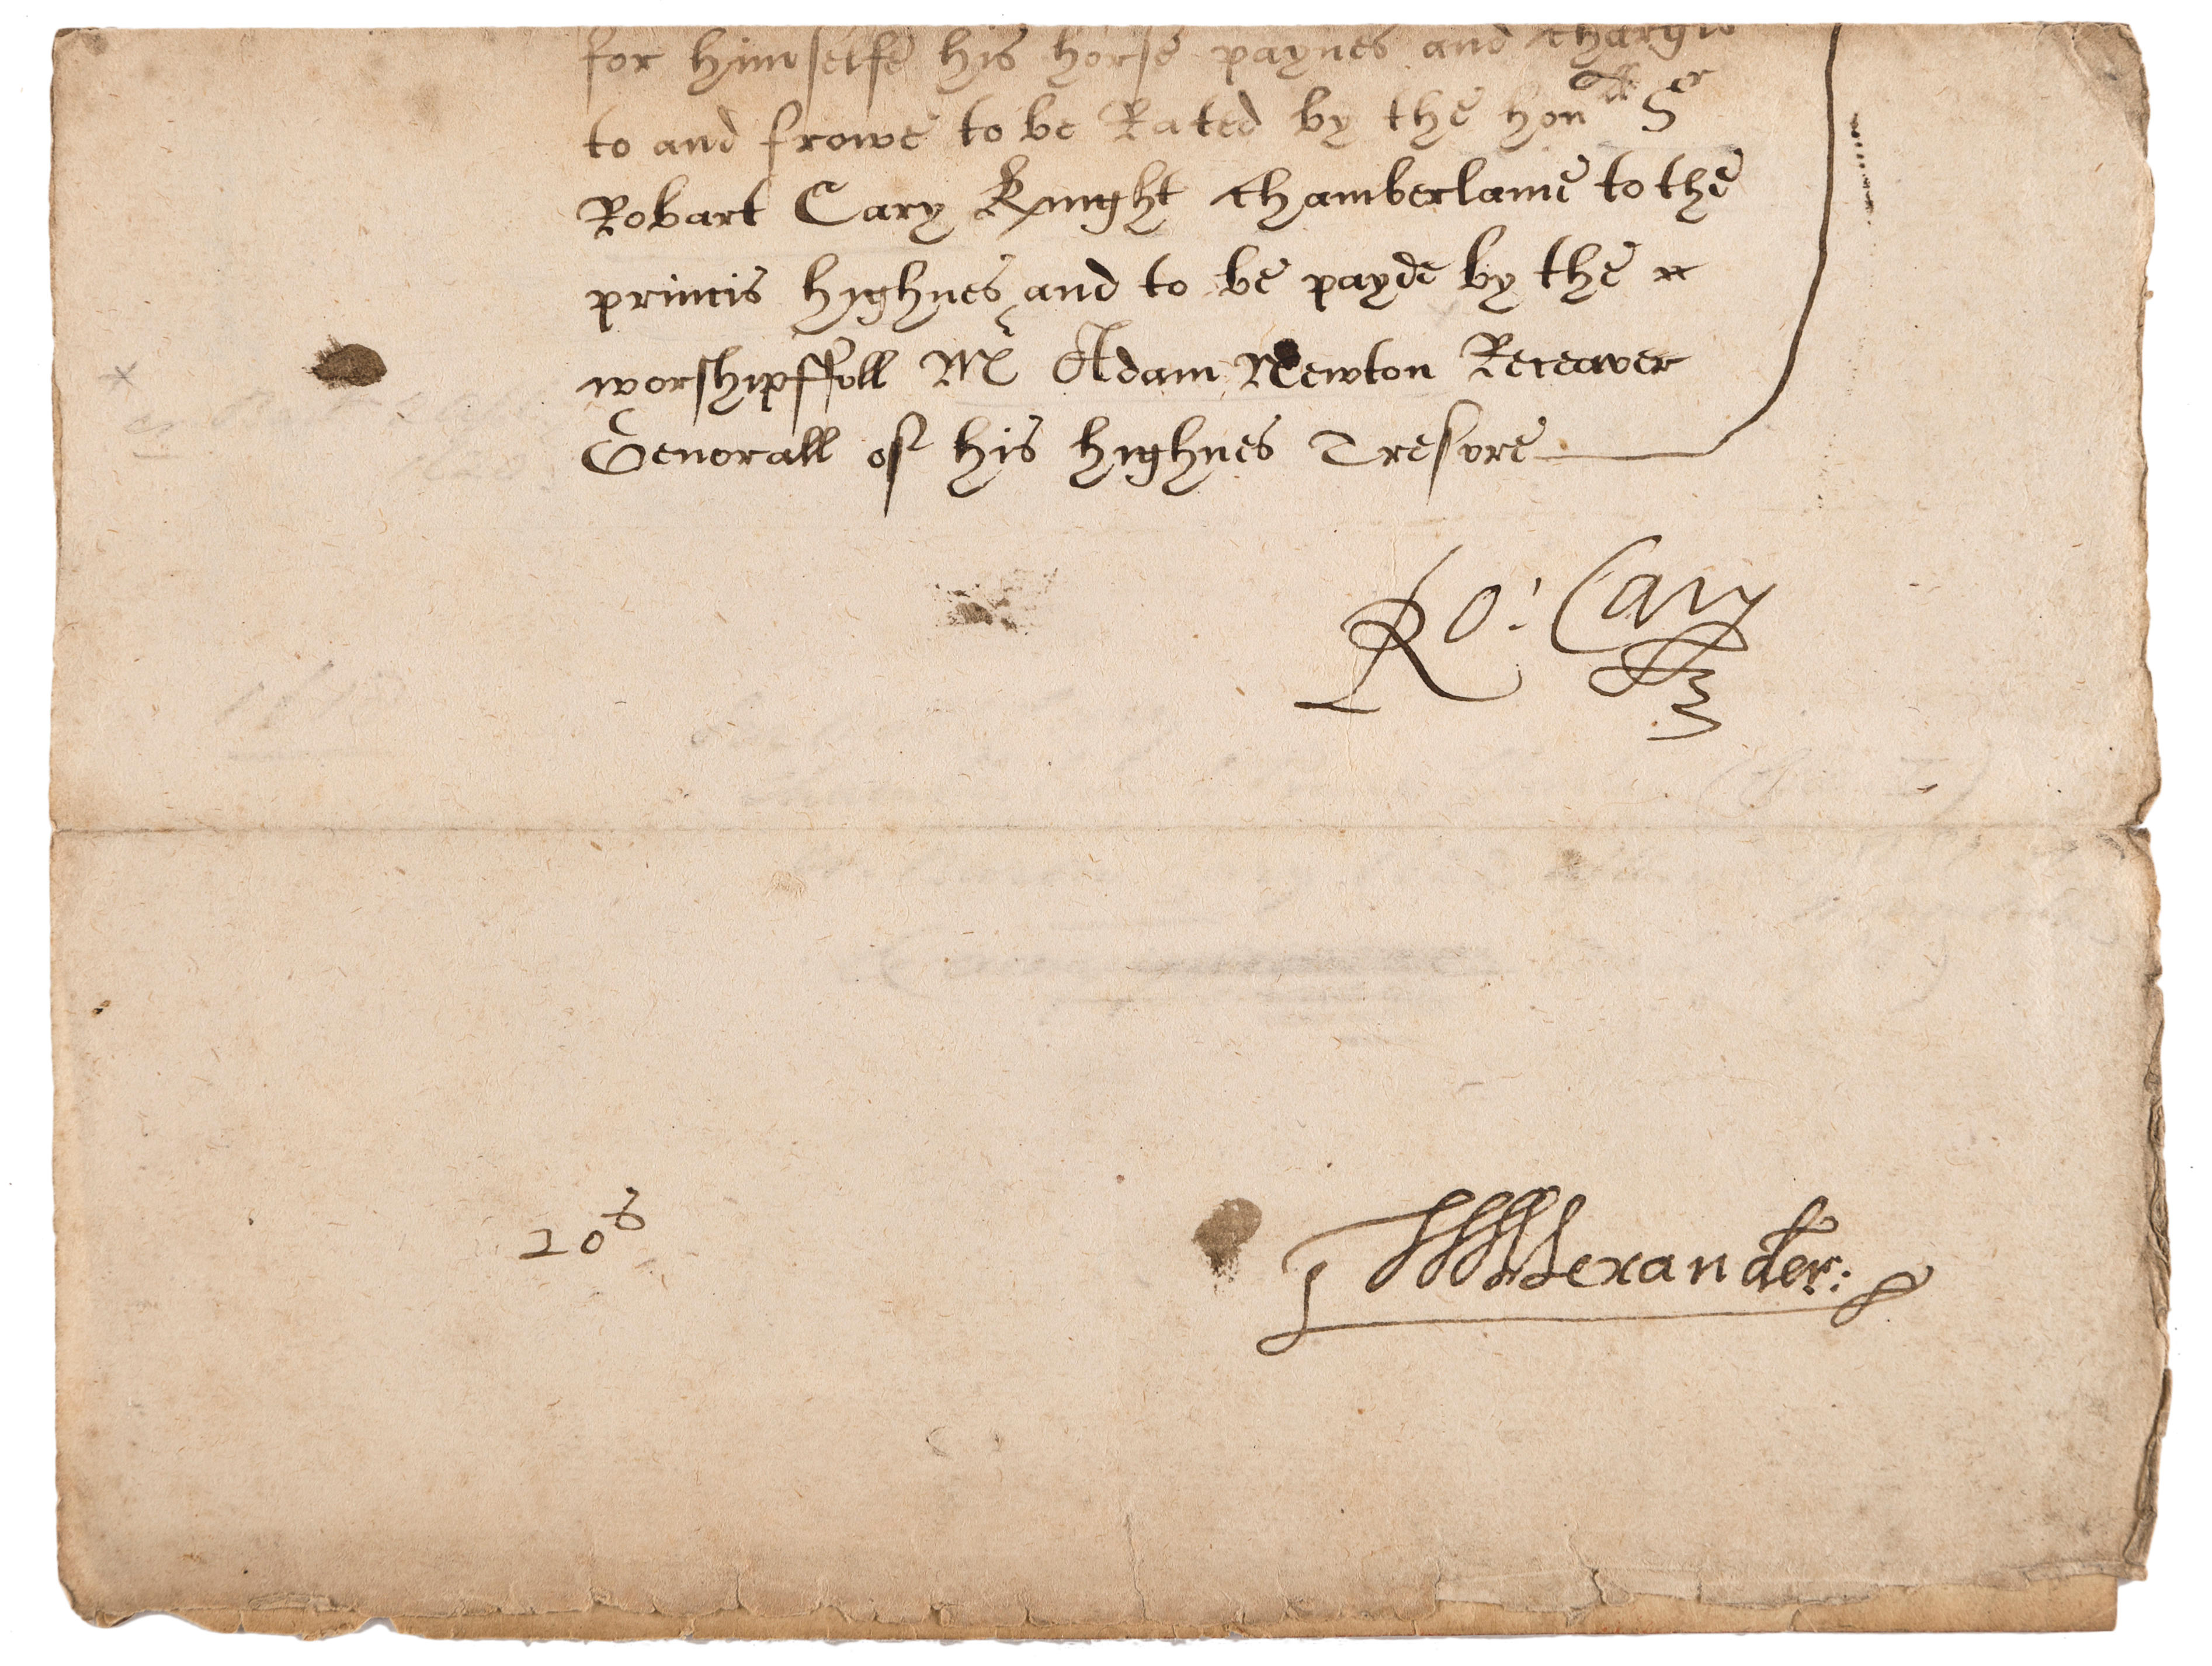 for himselfe his horse paynes and chargis
to and frowe to be Rated by the hon Sr
Robart Cary Knight chamberlaine to the
princis highnes and to be payde by the
worshipffull Mr Adam Newton Receaver
Generall of his highnes Tresure
Ro: Cary
20s
WAlexander: